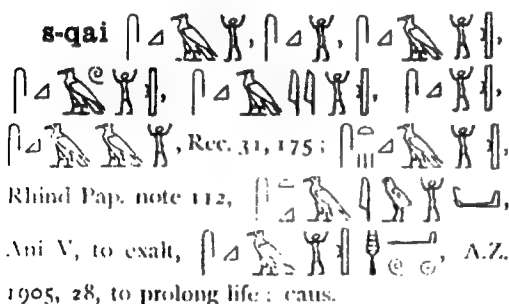 s-qai 𓋴𓈎𓄿𓀠, 𓋴𓈎𓀠, 𓋴𓈎𓄿𓀠𓏜,
𓋴𓈎𓄿𓏲𓀠𓏜, 𓋴𓈎𓄿𓇌𓀠𓏜, 𓋴𓈎𓀠𓏜,
𓋴𓈎𓄿𓄿𓀠, Rec. 31, 175 ; 𓈎𓄿𓀠𓏜,
Rhind Pap. note 112, 𓄿𓇋𓅱𓀠
Ani V, to exalt, 𓋴𓈎𓄿𓀠𓏜, A.Z.
1905, 28, to prolong life ; caus.